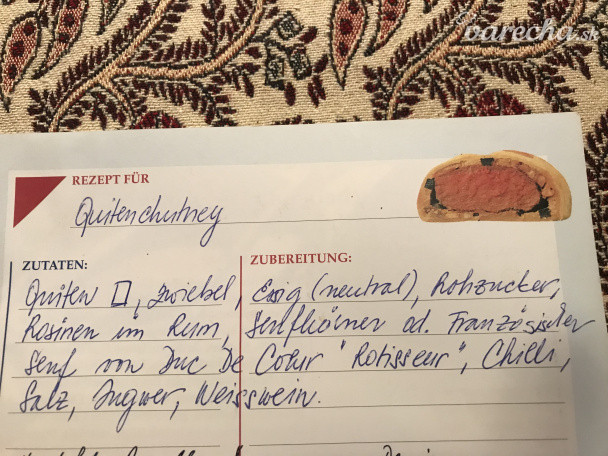 varecha.sk
REZEPT FÜR
Quitenchutney
ZUTATEN:
ZUBEREITUNG:
Quiten □, Zwiebel, Essig (neutral), Rohzucker,
Rosinen im Rum, Senfkörner od. Französischer
Senf von Duc De Coeur "Rotisseur", Chilli,
Salz, Ingwer, Weisswein.